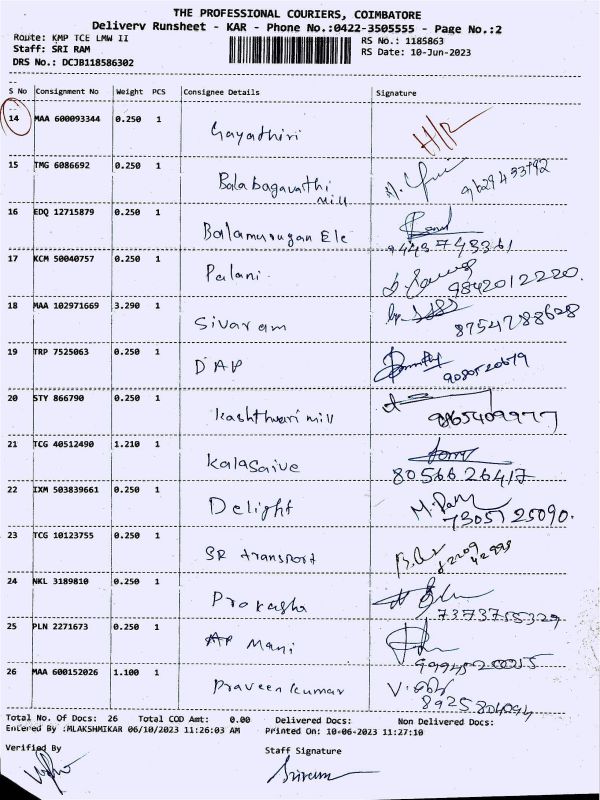 THE PROFESSIONAL COURIERS, COIMBATORE
Delivery Runsheet - KAR - Phone No.:0422-3505555 - Page No.:2
Route: KMP TCE LMW II
RS No.: 1185863
Staff: SRI RAM
RS Date: 10-Jun-2023
DRS No.: DCJB118586302
S No Consignment No Weight PCS Consignee Details Signature
14 MAA 600093344 0.250 1 Gayathiri H/R
15 TMG 6086692 0.250 1 Balabagavathi mill 9629433792
16 EDQ 12715879 0.250 1 Balamurugan Ele 9443743361
17 KCM 50040757 0.250 1 Palani 9842012220.
18 MAA 102971669 3.290 1 Sivaram 8754788628
19 TRP 7525063 0.250 1 DAP 9080520679
20 STY 866790 0.250 1 Kashthuri mill 9865409977
21 TCG 40512490 1.210 1 Kalasaive 8056626417
22 IXM 503839661 0.250 1 Delight 7305725090.
23 TCG 10123755 0.250 1 SR transport
24 NKL 3189810 0.250 1 Prakasha 7373755329
25 PLN 2271673 0.250 1 AP Mani
26 MAA 600152026 1.100 1 Praveen kumar 8925804094
Total No. Of Docs: 26 Total COD Amt: 0.00 Delivered Docs: Non Delivered Docs:
Entered By :MLAKSHMIKAR 06/10/2023 11:26:03 AM Printed On: 10-06-2023 11:27:10
Verified By Staff Signature
Sriram